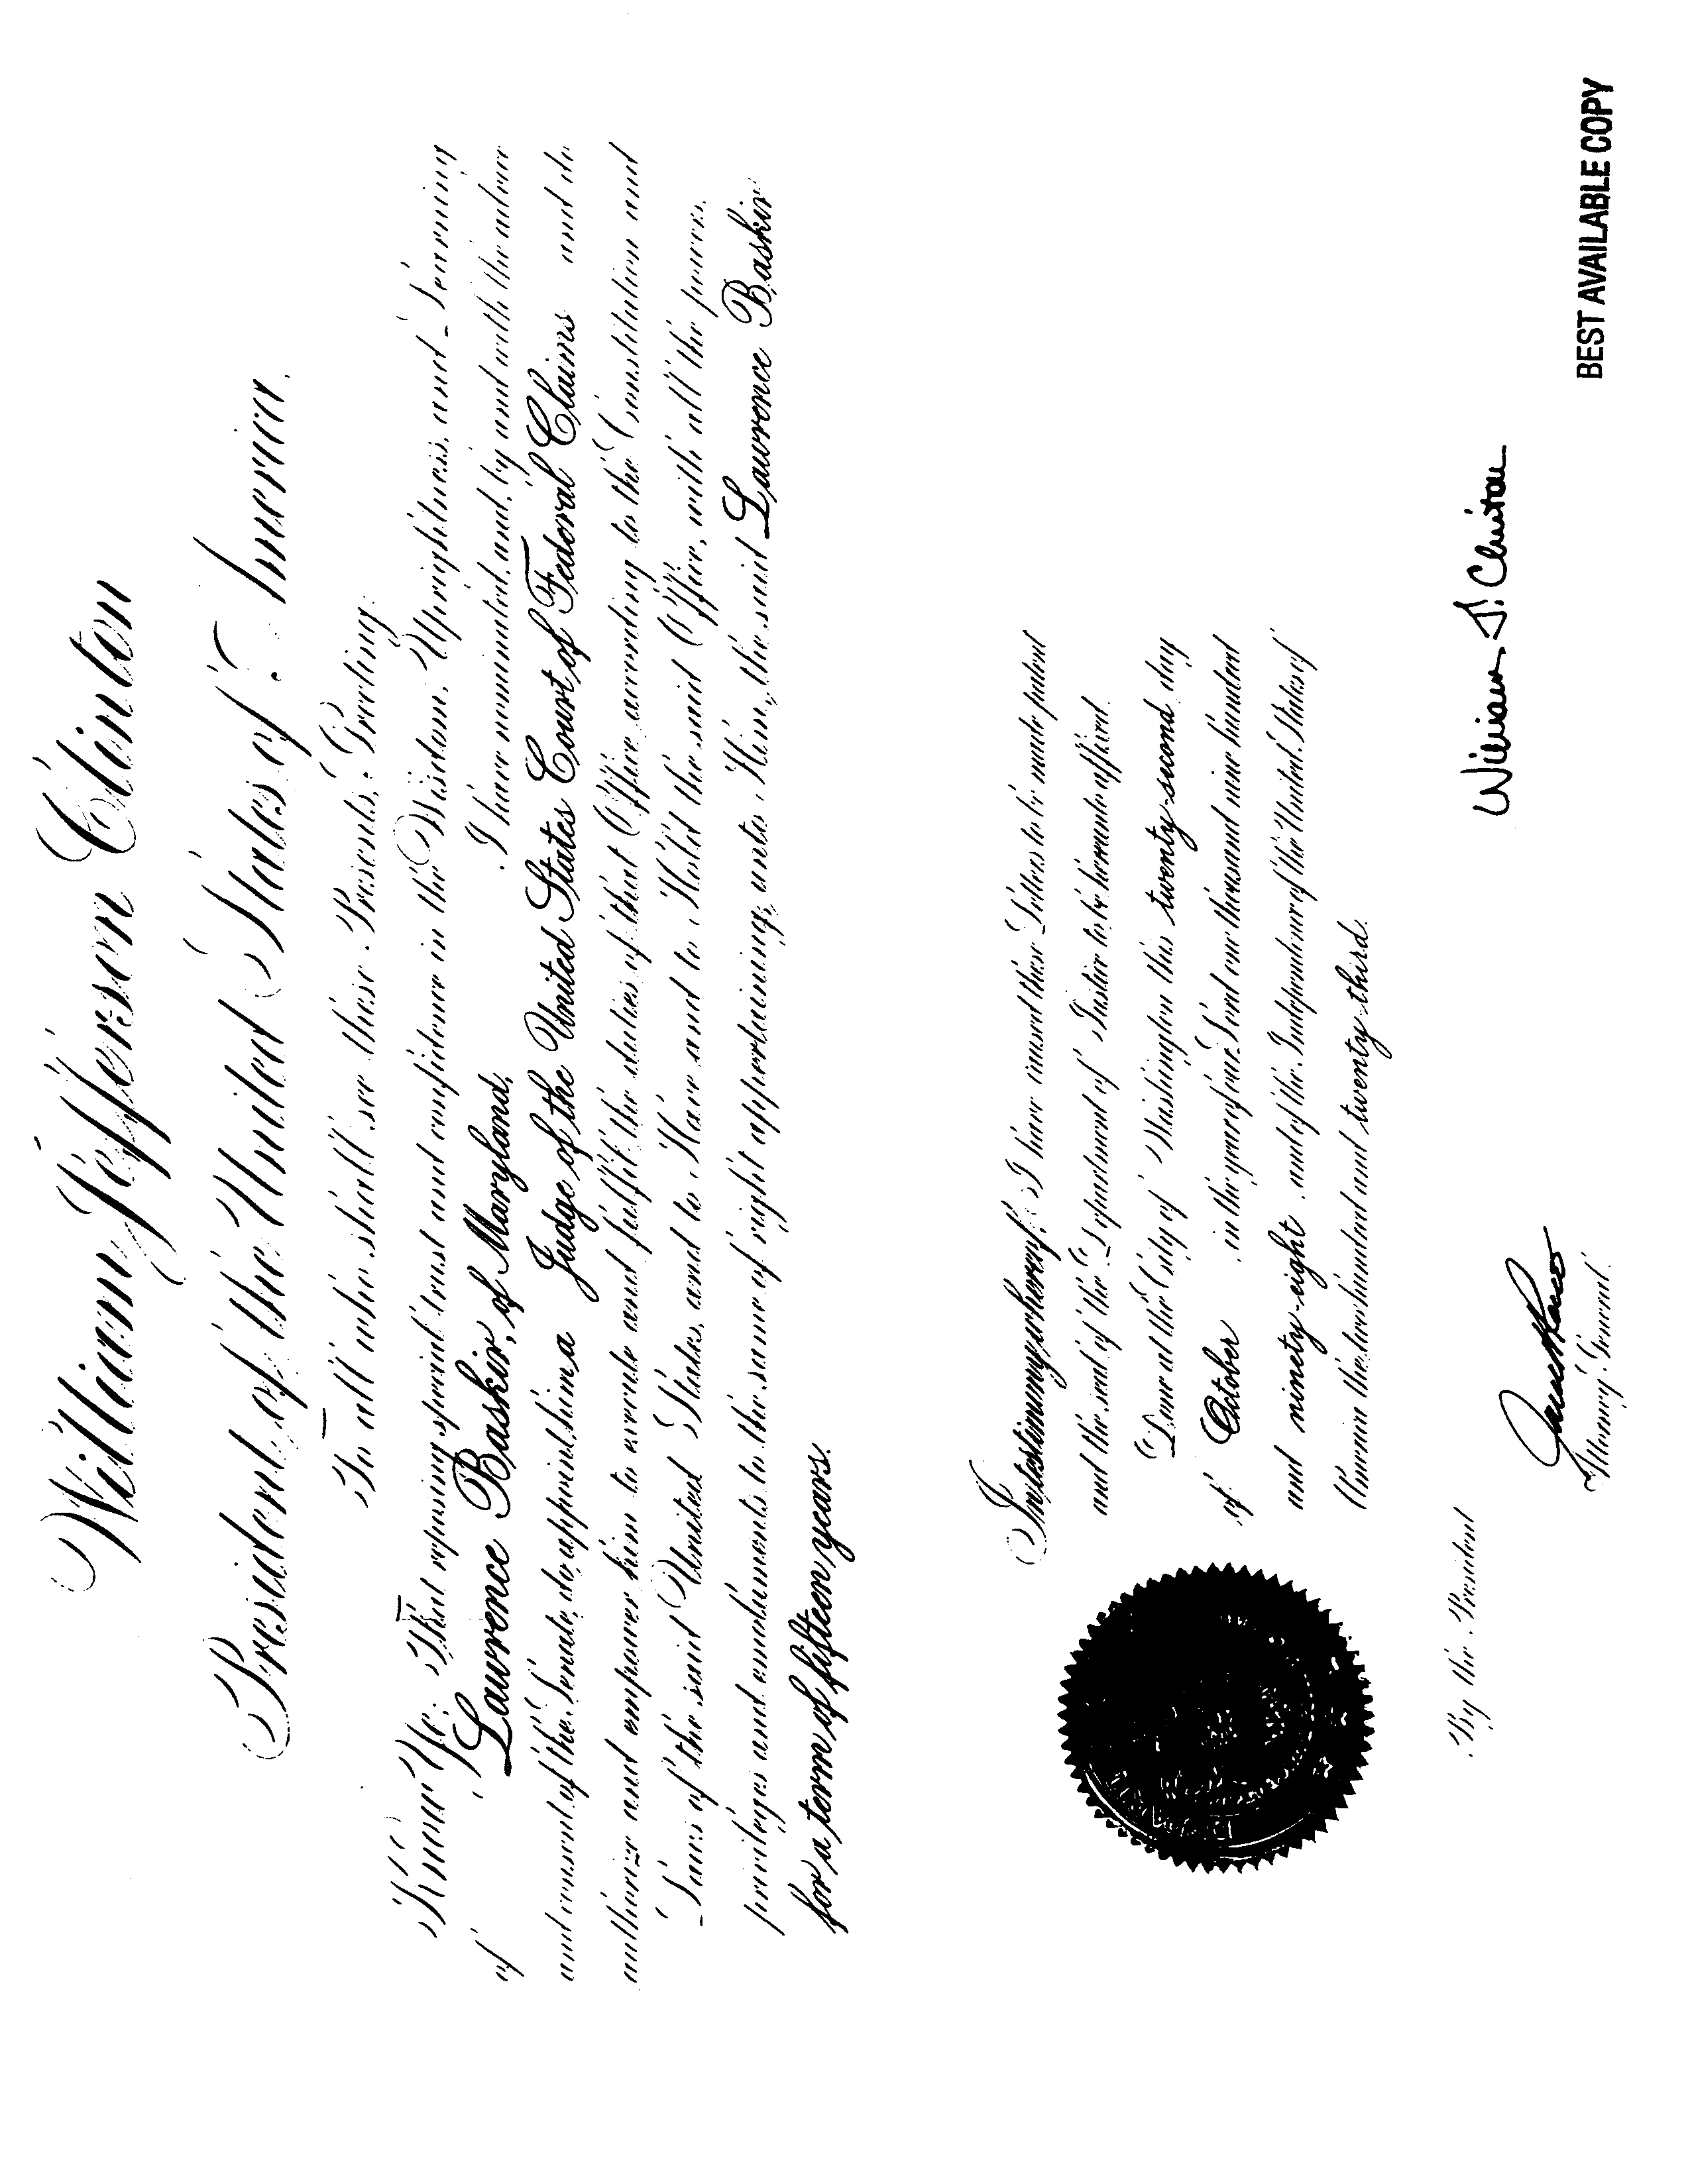 William Jefferson Clinton
President of the United States of America.
To all who shall see these Presents, Greeting:
Know Ye: That reposing special trust and confidence in the Wisdom, Uprightness, and Learning
of Lawrence Baskir, of Maryland, I have nominated, and, by and with the advice
and consent of the Senate, do appoint him a Judge of the United States Court of Federal Claims and do
authorize and empower him to execute and fulfil the duties of that Office according to the Constitution and
Laws of the said United States, and to Have and to Hold the said Office, with all the powers,
privileges and emoluments to the same of right appertaining, unto Him, the said Lawrence Baskir
for a term of fifteen years.
In testimony whereof, I have caused these Letters to be made patent
and the seal of the Department of Justice to be hereunto affixed.
Done at the City of Washington this twenty-second day
of October in the year of our Lord one thousand nine hundred
and ninety-eight and of the Independence of the United States of
America the two hundred and twenty-third.
By the President
William J. Clinton
Janet Reno
Attorney General.
BEST AVAILABLE COPY